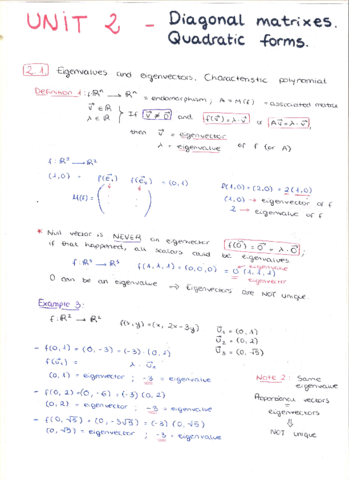 UNIT 2 - Diagonal matrixes.
Quadratic forms.
2.1 Eigenvalues and eigenvectors. Characteristic polynomial
Definition 1: f: ℝⁿ → ℝⁿ = endomorphism; A = M(f) = associated matrix
v⃗ ∈ ℝ
λ ∈ ℝ } If v⃗ ≠ 0⃗ and f(v⃗) = λ · v⃗ Av⃗ = λ · v⃗,
then v⃗ = eigenvector
λ = eigenvalue of f (or A)
f: ℝ² → ℝ²
(1,0) f(e⃗₁) f(e⃗₂) = (0,1) f(1,0) = (2,0) = 2(1,0)
M(f) = ( ) (1,0) → eigenvector of f
2 → eigenvalue of f
* Null vector is NEVER an eigenvector f(0⃗) = 0⃗ = λ · 0⃗;
if that happened, all scalars could be eigenvalues
f: ℝ³ → ℝ³ f(1,1,1) = (0,0,0) = 0 (1,1,1) eigenvalue
eigenvector
0 can be an eigenvalue → Eigenvectors are NOT unique.
Example 3:
f: ℝ² → ℝ² f(x,y) = (x, 2x-3y) U⃗₁ = (0,1)
U⃗₂ = (0,2)
U⃗₃ = (0,√5)
- f(0,1) = (0,-3) = (-3) · (0,1)
f(U⃗₁) = λ · U⃗₁
(0,1) = eigenvector ; -3 = eigenvalue
- f(0,2) = (0,-6) = (-3) (0,2)
(0,2) = eigenvector ; -3 = eigenvalue
- f(0,√5) = (0,-3√5) = (-3) (0,√5)
(0,√5) = eigenvector ; -3 = eigenvalue
Note 2: Same
eigenvalue
vectors
=
eigenvectors
⇓
NOT unique